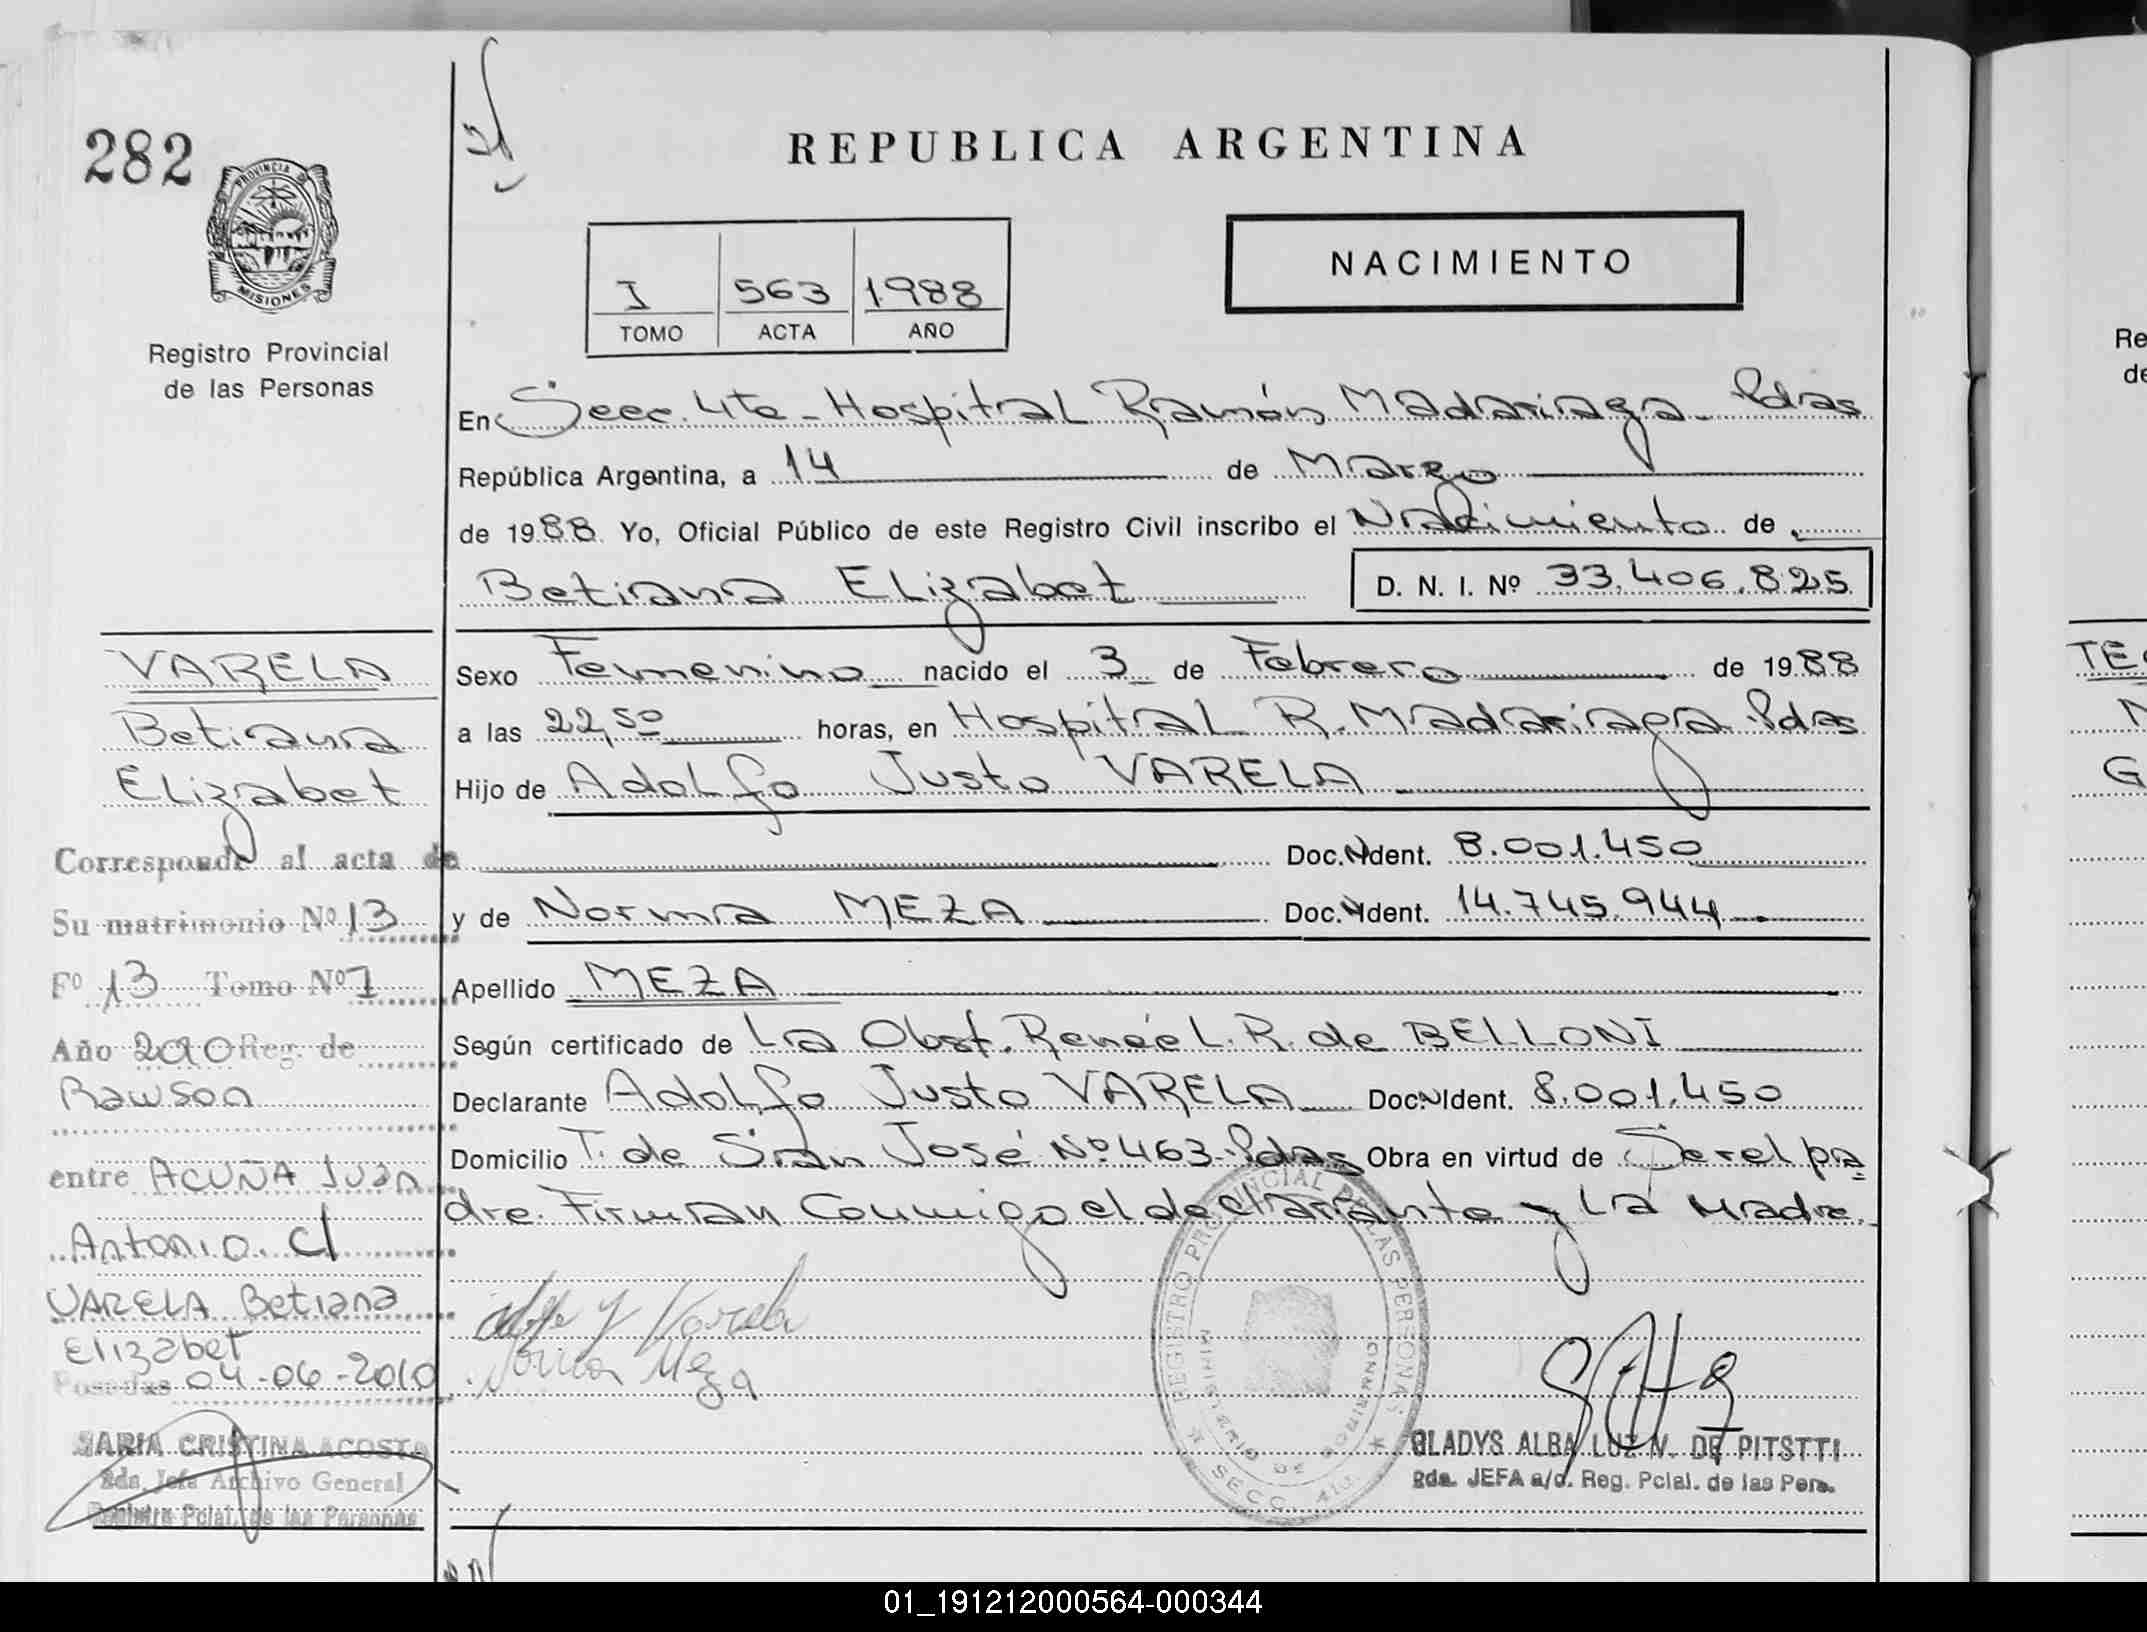 282
PROVINCIA DE
MISIONES
Registro Provincial
de las Personas
REPUBLICA ARGENTINA
NACIMIENTO
I 563 1.988
TOMO ACTA AÑO
En Secc. 4ta - Hospital Ramón Madariaga - Pdas
República Argentina, a 14 de Marzo
de 1988 Yo, Oficial Público de este Registro Civil inscribo el Nacimiento de
Betiana ELizabet D. N. I. Nº 33.406.825
Sexo Femenino nacido el 3 de Febrero de 1988
a las 22,50 horas, en Hospital R. Madariaga Pdas
Hijo de Adolfo Justo VARELA
Doc. Ident. 8.001.450
y de Norma MEZA Doc. Ident. 14.745.944
Apellido MEZA
Según certificado de La Obst. Renée L. R. de BELLONI
Declarante Adolfo Justo VARELA Doc. Ident. 8.001.450
Domicilio T. de San José Nº 463 - Pdas Obra en virtud de Ser el pa
dre. Firman Conmigo el declarante y La Madre.
VARELA
Betiana
ELizabet
Corresponde al acta de
Su matrimonio Nº 13
Fº 13 Tomo Nº 1
Año 2010 Reg. de
Rawson
entre ACUÑA Juan
Antonio c/
VARELA Betiana
Elizabet
Posadas 04-06-2010
MARIA CRISTINA ACOSTA
2da. Jefa Archivo General
Registro Pcial. de las Personas
Adolfo J Varela
Norma Meza
REGISTRO PROVINCIAL DE LAS PERSONAS
MINISTERIO DE GOBIERNO
SECC. 4ta.
GLADYS ALBA LUZ N. DE PITSTTI
2da. JEFA a/c. Reg. Pcial. de las Pers.
Re
de
TE
N
G
01_191212000564-000344